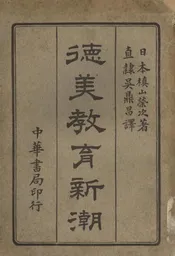 日本槇山榮次著
直隸吳鼎昌譯
德美教育新潮
中華書局印行